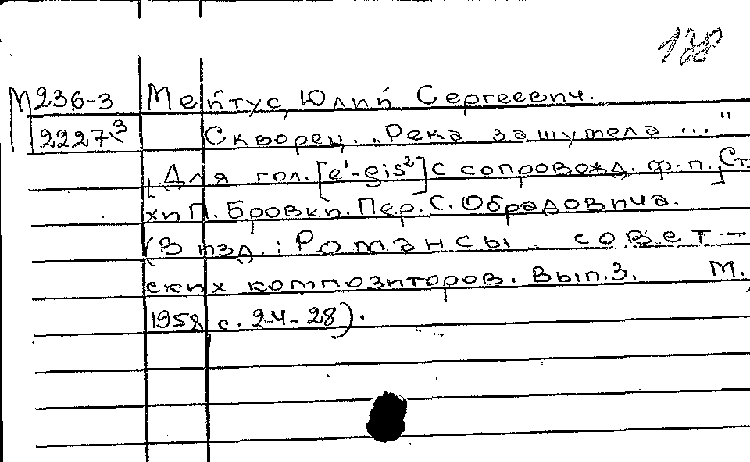 138
М 236-3 Мейтус, Юлий Сергеевич.
2227³ Скворец. "Река зашумела ..."
[Для гол. [e¹-gis²] с сопровожд. ф.-п.] Сти-
хи П. Бровки. Пер. С. Обрадовича.
(В изд.: Романсы совет-
ских композиторов. Вып. 3. М.,
1958 с. 24-28).